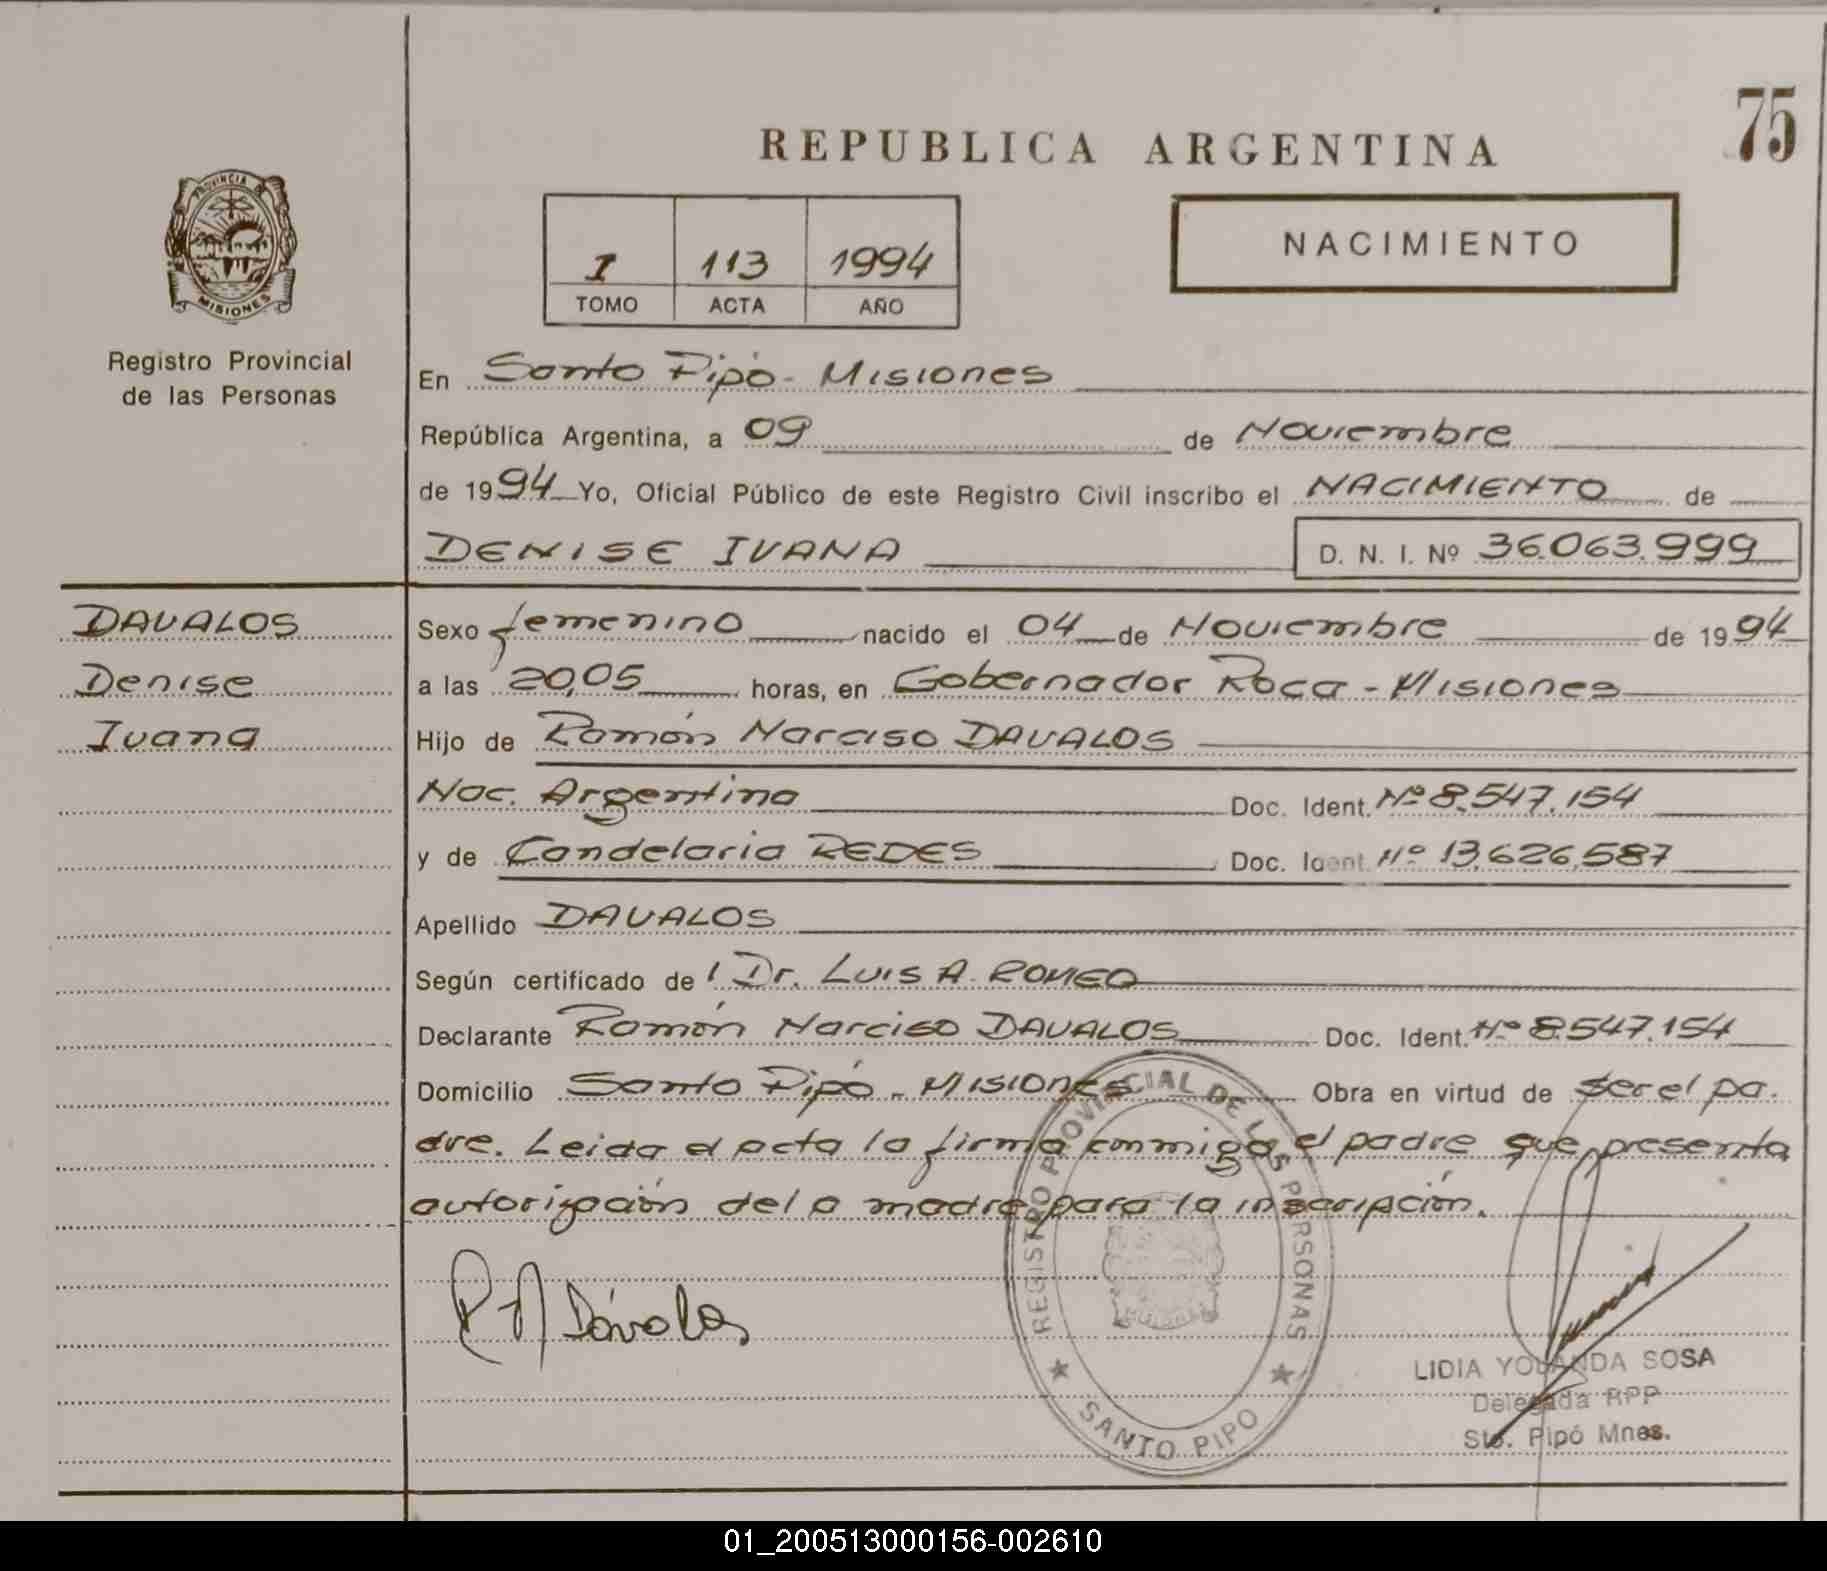 75
REPUBLICA ARGENTINA
PROVINCIA DE
MISIONES
Registro Provincial
de las Personas
I 113 1994
TOMO ACTA AÑO
NACIMIENTO
En Santo Pipó - Misiones
República Argentina, a 09 de Noviembre
de 1994 Yo, Oficial Público de este Registro Civil inscribo el NACIMIENTO de
DENISE IVANA D. N. I. Nº 36.063.999
DAVALOS
Denise
Ivana
Sexo femenino nacido el 04 de Noviembre de 1994
a las 20,05 horas, en Gobernador Roca - Misiones
Hijo de Ramón Narciso DAVALOS
Nac. Argentina Doc. Ident. Nº 8.547.154
y de Candelaria REDES Doc. Ident. Nº 13.626.587
Apellido DAVALOS
Según certificado de l Dr. Luis A. ROMEO
Declarante Ramón Narciso DAVALOS Doc. Ident. Nº 8.547.154
Domicilio Santo Pipó - Misiones Obra en virtud de ser el pa.
dre. Leida el acta la firma conmigo el padre que presenta
autorización de la madre para la inscripción.
R N Dávalos
REGISTRO PROVINCIAL DE LAS PERSONAS
SANTO PIPO
LIDIA YOLANDA SOSA
Delegada RPP
Sto. Pipó Mnes.
01_200513000156-002610